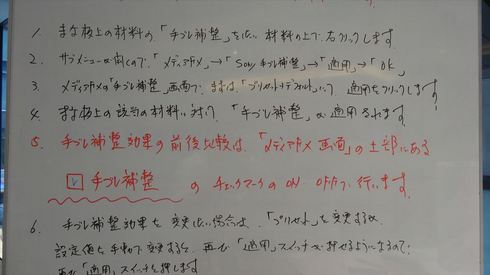 1. まな板上の材料の「手ブレ補整」をしたい材料の上で、右クリックします。
2. サブメニューが開くので、「メディアタメ」→「Sony 手ブレ補整」→「適用」→「OK」
3. メディアタメの「手ブレ補整」画面で、まずは「プリセット：デフォルト」にて、適用をクリックします！
4. まな板上の該当の材料に対して「手ブレ補整」が適用されます。
5. 手ブレ補整効果の前後比較は、「メディアタメ画面」の上部にある
手ブレ補整 のチェックマークのON OFFで行います。
6. 手ブレ補整効果を変更したい場合は、「プリセット」を変更するか、
設定値を手動で変更すると、再び「適用」スイッチが押せるようになるので、
再び「適用」スイッチを押します